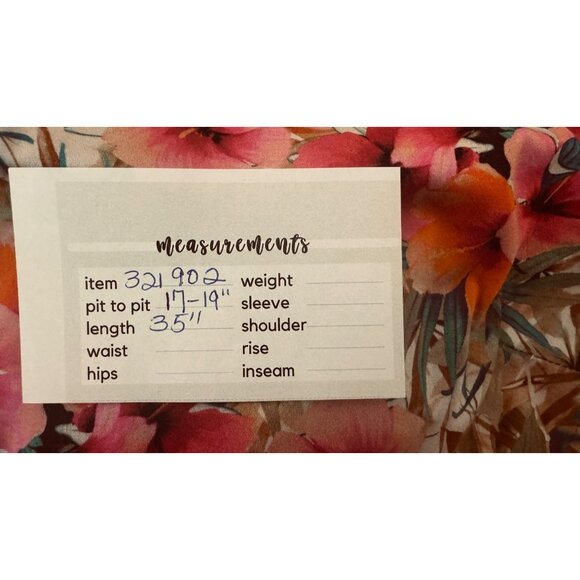 measurements
item 321902 weight
pit to pit 17-19" sleeve
length 35" shoulder
waist rise
hips inseam